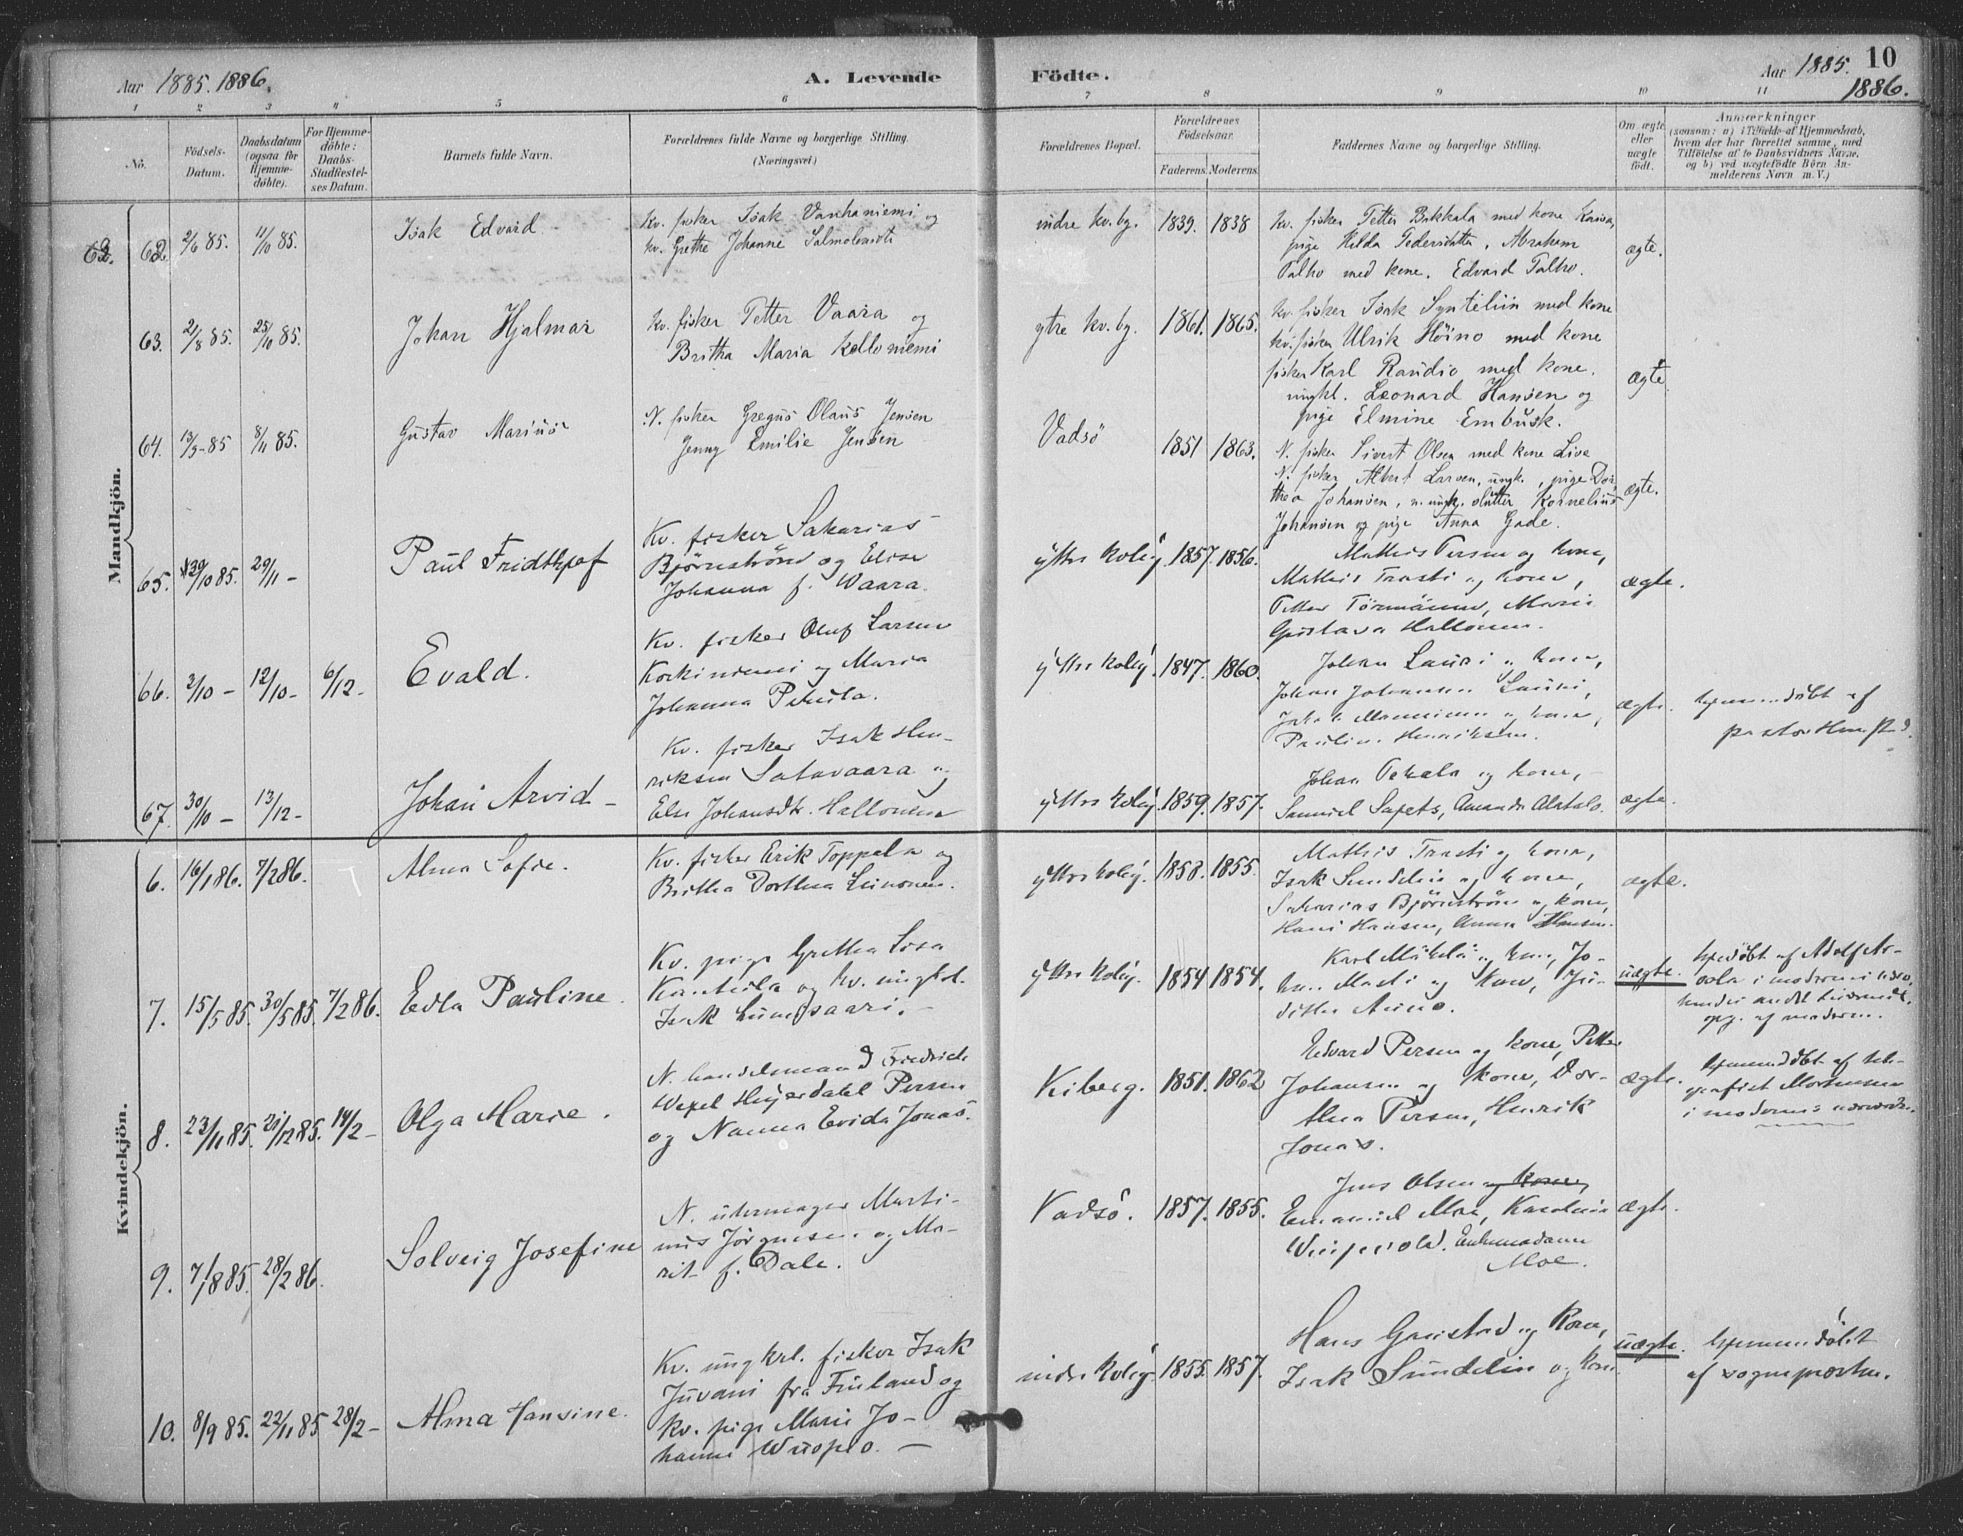 Aar 1885. 1886.
A. Levende
Födte.
Aar 1885. 10
1886.
1 2 3 4 5 6 7 8 9 10 11
No.
Födsels-
Datum.
Daabsdatum
(ogsaa for
Hjemme-
døbte).
For Hjemme-
döbte:
Daabs-
Stadfæstel-
ses Datum.
Barnets fulde Navn.
Forældrenes fulde Navne og borgerlige Stilling.
(Næringsvei)
Forældrenes Bopæl.
Forældrenes
Födselsaar.
Faderens. Moderens.
Faddernes Navne og borgerlige Stilling.
Om ægte
eller
uægte
født.
Anmærkninger
(saasom: a) i Tilfælde af Hjemmedaab,
hvem der har forrettet samme, med
Tilföielse af to Daabsvidners Navne,
og b) ved uægtefödte Börn An-
melderens Navn m. V.)
Mandkjön.
62. 2/6 85. 11/10 85.
Isak Edvard
Kv. fisker Isak Vanhaniemi og
kv. Grethe Johanne Salmolandti
indre kv. by. 1839. 1838
kv. fisker Petter Bikkala med kone Kaisa,
pige Hilda Pedersdatter, Abraham
Palho med kone. Edvard Palho.
ægte.
63. 2/8 85. 25/10 85.
Johan Hjalmar
kv. fisker Petter Vaara og
Britha Maria Kolloniemi
ytre kv. by. 1861. 1865.
kv. fisker Isak Synteliin med kone
kv. fisker Ulrik Höino med kone
fisker Karl Raudio med kone.
ungkl. Leonard Hansen og
pige Elmine Embusk.
ægte
64. 13/9-85 8/11 85.
Gustav Marius
N. fisker Gregus Olaus Jensen
Jenny Emilie Jensen
Vadsö 1851 1863.
N. fisker Sivert Olsen med kone Live
N. fisker Albert Larsen, ungk., pige Dor-
thea Johansen, n. ungk. slutter Kornelius
Johansen og pige Anna Gade.
ægte.
65. 30/10 85. 29/11 -
Paul Fridthjof
Kv. fisker Sakarias
Björnström og Elise
Johanna f. Waara.
ÿttre kvbÿ. 1857. 1856.
Mathis Persen og kone,
Mathis Trasti og kone,
Petter Törmänen, Maria
Gustava Hallonen.
ægte.
66. 2/10 - 12/10 - 6/12 -
Evald.
Kv. fisker Oluf Larsen
Korkiniemi og Maria
Johanna Pekula.
ÿttre kvbÿ. 1847. 1860.
Johan Lauri og kone,
Johan Johansen Lauri,
og kone,
Paulin. Henriksen.
ægte. hjemmedøbt af
pastor
67. 30/10 - 13/12 -
Johan Arvid -
Kv. fisker Isak Hen-
riksen Satavaara og
Else Johansdtr. Hallonen
ÿttre kvbÿ. 1859. 1857.
Johan Pekala og kone, -
Samuel Sapets, Amanda Alatalo.
ægte.
Kvindekjön.
6. 16/1 86. 7/2 86.
Alma Sofie.
Kv. fisker Erik Toppela og
Britha Dorthea Leinonen.
ÿttre kvbÿ. 1858. 1855.
Mathis Trasti og kone,
Isak Sundelin og kone,
Sakarias Björnström og kone,
Hans Hansen, Anna Hansen.
ægte.
7. 15/5 85. 30/5 85. 7/2 86.
Edla Pauline.
Kv. pige Gretha Lisa
Kantiola og kv. ungkl.
Isak Lumisaari. -
ÿttre kvbÿ. 1854 1854.
Karl Mikkela og kone, Jo-
han Masti og kone, Ju-
ditha Auno.
uægte. hjedøbt af Adolf Ar-
vola i moderens
opg. af moderen.
8. 23/11 85. 21/12 85. 14/2 -
Olga Marie.
N. handelsmand Fredrik
Wexel Heyerdahl Persen
og Nanna Evida Jonas.
Kiberg. 1851. 1862
Edvard Persen og kone, Petter
Johansen og kone, Dor-
thea Persen, Henrik
Jonas.
ægte. hjemmedøbt af tele-
grafist Mortensen
i moderens nærværelse.
9. 7/8 85. 28/2 86.
Solveig Josefine
N. uhrmager Marti-
nus Jörgensen og Ma-
rit f. Dale.
Vadsö. 1857. 1855.
Jens Olsen og kone,
Emanuel Moe, Karoline
Enkemadam
Moe.
ægte.
10. 8/9 85. 22/11 85 28/2 -
Alma Hansine.
Kv. ungkrl. fisker Isak
Juvani fra Finland og
kv. pige Maria Jo-
hanna Wuopio. -
indre kvbÿ. 1855. 1857.
Hans Grunstad og kone,
Isak Sundelin og kone
uægte. hjemmedøbt
af sognepræsten.